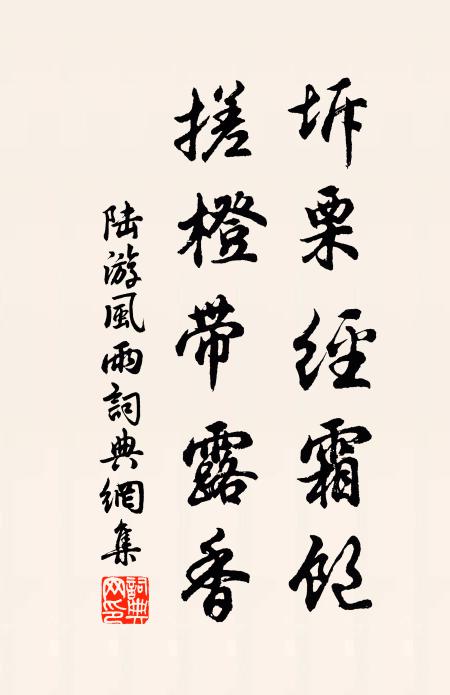 坼栗經霜飽
搓橙帶露香
陸游風雨詞典網集
詞典
网印